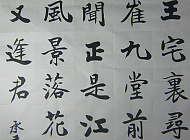 王宅裏尋
崔九堂前
聞正是江
風景落花
又逢君
永